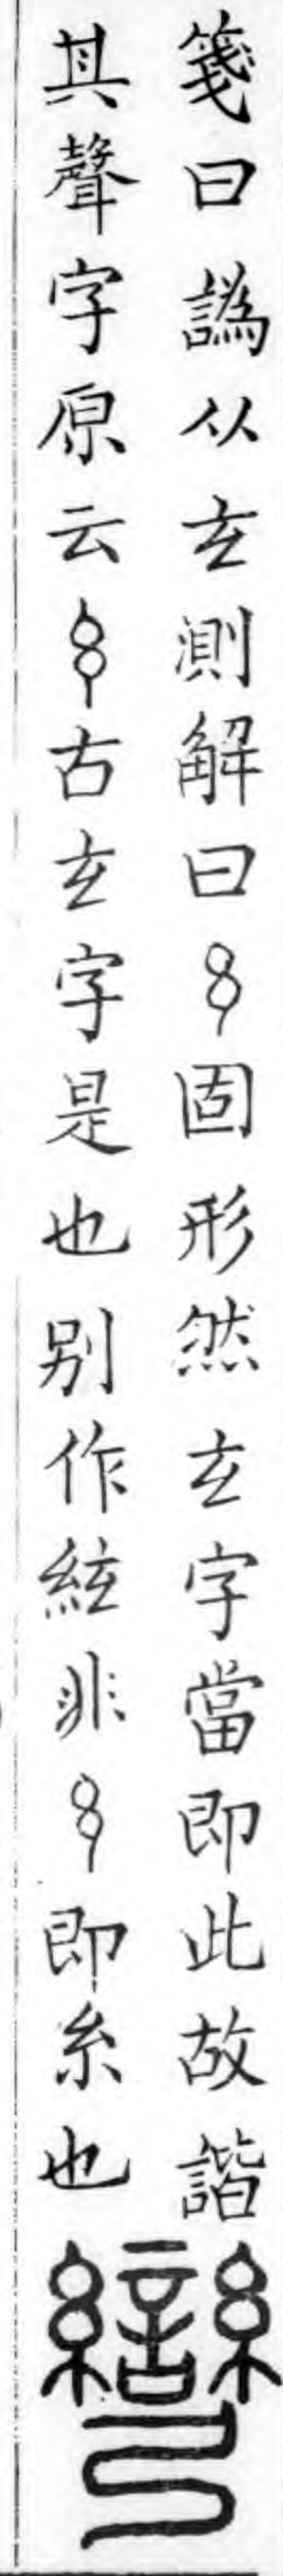 箋曰譌从玄測解曰𠃉固形然玄字當即此故諧
其聲字原云古玄字是也别作絃非即糸也
彎